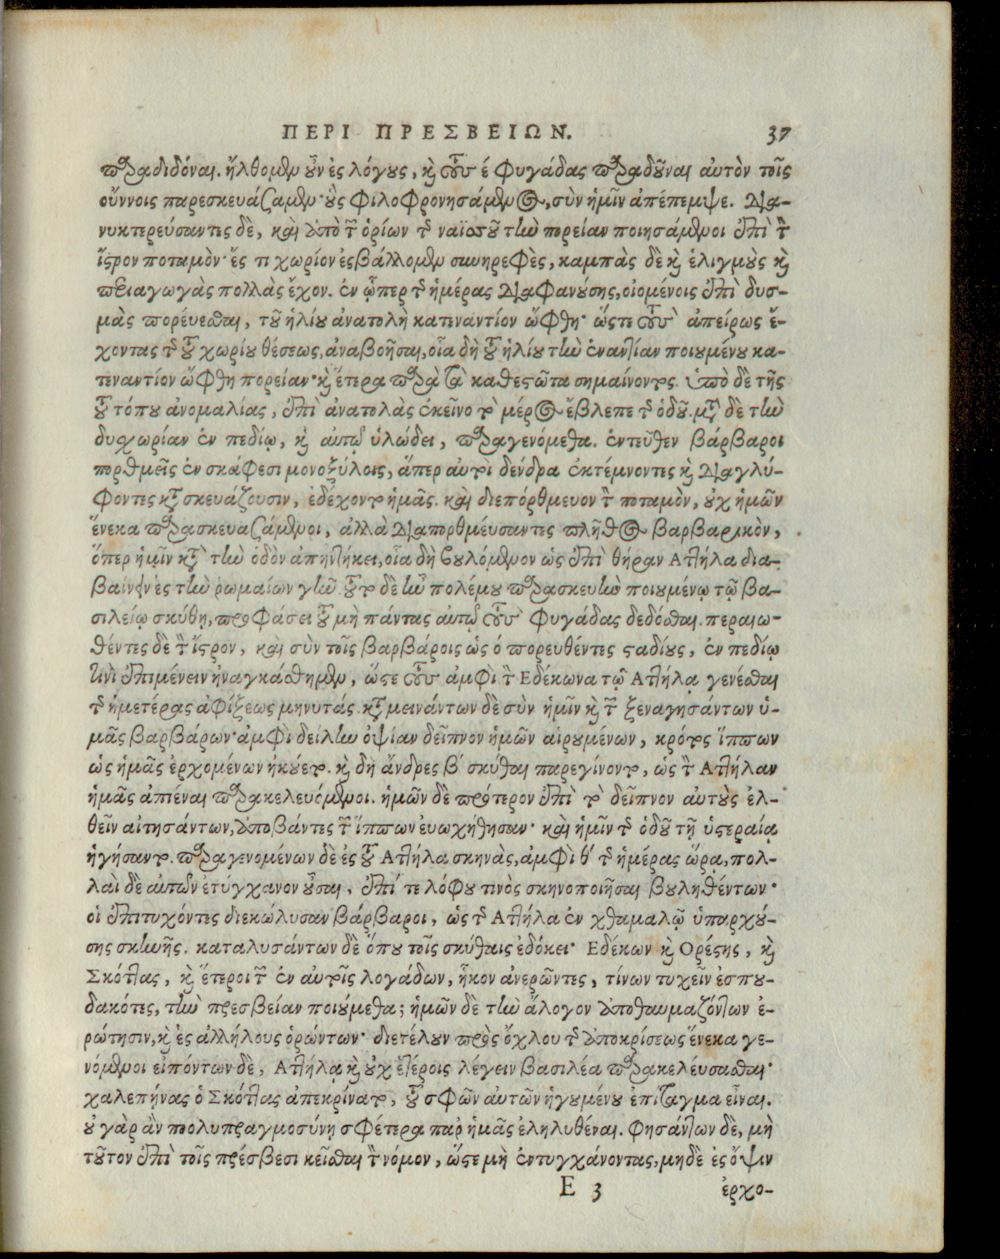 ΠΕΡΙ ΠΡΕΣΒΕΙΩΝ. 37
παραδιδόναι. ἤλθομεν οὖν ἐς λόγους, καὶ τοὺς έ φυγάδας παραδοῦναι αὐτὸν τοῖς
οὔννοις παρεσκευάζαμεν· οὓς φιλοφρονησάμενος, σὺν ἡμῖν ἀπέπεμψε. Δια-
νυκτερεύσαντες δὲ, καὶ ἀπὸ τῶν ὁρίων τῆς ναϊσοῦ τὴν πορείαν ποιησάμενοι ἐπὶ τὸν
ἴστρον ποταμὸν· ἔς τι χωρίον ἐσβάλλομεν συνηρεφὲς, καμπὰς δὲ καὶ ἑλιγμοὺς καὶ
περιαγωγὰς πολλὰς ἔχον. ἐν ᾧπερ τῆς ἡμέρας διαφανούσης, οἰομένοις ἐπὶ δυσ-
μὰς πορεύεσθαι, τοῦ ἡλίου ἀνατολὴ κατεναντίον ὤφθη· ὥστε τοὺς ἀπείρως ἔ-
χοντας τῆς τοῦ χωρίου θέσεως, ἀναβοῆσαι, οἷα δὴ τοῦ ἡλίου τὴν ἐναντίαν ποιουμένου κα-
τεναντίον ὤφθη πορείαν· καὶ ἕτερα παρὰ τὰ καθεστῶτα σημαίνοντος. ὑπὸ δὲ τῆς
τοῦ τόπου ἀνομαλίας, ἐπὶ ἀνατολὰς ἐκεῖνο τὸ μέρος ἔβλεπε τῆς ὁδοῦ. μετὰ δὲ τὴν
δυσχωρίαν ἐν πεδίῳ, καὶ αὐτῷ ὑλώδει, παραγενόμεθα. ἐντεῦθεν βάρβαροι
πορθμεῖς ἐν σκάφεσι μονοξύλοις, ἅπερ αὐτοὶ δένδρα ἐκτέμνοντες καὶ διαγλύ-
φοντες κατασκευάζουσιν, ἐδέχοντο ἡμᾶς. καὶ διεπόρθμευον τὸν ποταμὸν, οὐχ ἡμῶν
ἕνεκα παρασκευαζάμενοι, ἀλλὰ διαπορθμεύσαντες πλῆθος βαρβαρικὸν,
ὅπερ ἡμῖν κατὰ τὴν ὁδὸν ἀπηντήκει, οἷα δὴ βουλόμενον ὡς ἐπὶ θήραν Ἀττήλα δια-
βαίνειν ἐς τὴν ῥωμαίων γῆν. τοῦτο δὲ ἦν πολέμου παρασκευὴν ποιουμένῳ τῷ βα-
σιλείῳ σκύθῃ, προφάσει τοῦ μὴ πάντας αὐτῷ τοὺς φυγάδας δεδόσθαι. περαιω-
θέντες δὲ τὸν ἴστρον, καὶ σὺν τοῖς βαρβάροις ὡς ὁ πορευθέντες σταδίους, ἐν πεδίῳ
τινὶ ἐπιμένειν ἠναγκάσθημεν, ὥστε τοὺς ἀμφὶ τὸν Ἐδέκωνα τῷ Ἀττήλᾳ γενέσθαι
τῆς ἡμετέρας ἀφίξεως μηνυτάς. καταμεινάντων δὲ σὺν ἡμῖν καὶ τῶν ξεναγησάντων ὑ-
μᾶς βαρβάρων· ἀμφὶ δείλην ὀψίαν δεῖπνον ἡμῶν αἱρουμένων, κρότος ἵππων
ὡς ἡμᾶς ἐρχομένων ἠκούετο. καὶ δὴ ἄνδρες β΄ σκύθαι παρεγίνοντο, ὡς τὸν Ἀττήλαν
ἡμᾶς ἀπιέναι παρακελευόμενοι. ἡμῶν δὲ πρότερον ἐπὶ τὸ δεῖπνον αὐτοὺς ἐλ-
θεῖν αἰτησάντων, ἀποβάντες τῶν ἵππων ἐυωχήθησαν· καὶ ἡμῖν τῆς ὁδοῦ τῇ ὑστεραίᾳ
ἡγήσαντο. παραγενομένων δὲ ἐς τοῦ Ἀττήλα σκηνὰς, ἀμφὶ θ΄ τῆς ἡμέρας ὥρα, πολ-
λαὶ δὲ αὐτῶν ἐτύγχανον οὖσαι, ἐπί τε λόφου τινὸς σκηνοποιῆσαι βουληθέντων·
οἱ ἐπιτυχόντες διεκώλυσαν βάρβαροι, ὡς τῆς Ἀττήλα ἐν χθαμαλῷ ὑπαρχού-
σης σκηνῆς. καταλυσάντων δὲ ὅπου τοῖς σκύθαις ἐδόκει· Ἐδέκων καὶ Ὀρέστης, καὶ
Σκόττας, καὶ ἕτεροι τῶν ἐν αὐτοῖς λογάδων, ἧκον ἀνερῶντες, τίνων τυχεῖν ἐσπου-
δακότες, τὴν πρεσβείαν ποιούμεθα; ἡμῶν δὲ τὴν ἄλογον ἀποθαυμαζόντων ἐ-
ρώτησιν, καὶ ἐς ἀλλήλους ὁρώντων· διετέλουν πρὸς ὄχλου τῆς ἀποκρίσεως ἕνεκα γε-
νόμενοι εἰπόντων δὲ, Ἀττήλᾳ καὶ οὐχ ἑτέροις λέγειν βασιλέα παρακελεύσασθαι·
χαλεπήνας ὁ Σκόττας ἀπεκρίνατο, τοῦ σφῶν αὐτῶν ἡγουμένου ἐπίταγμα εἶναι.
οὐ γὰρ ἂν πολυπραγμοσύνῃ σφέτερα παρ᾽ ἡμᾶς ἐληλυθέναι. φησάντων δὲ, μὴ
τοῦτον ἐπὶ τοῖς πρέσβεσι κεῖσθαι τὸν νόμον, ὥστε μὴ ἐντυγχάνοντας, μηδὲ ἐς ὄψιν
E 3 ἐρχο-